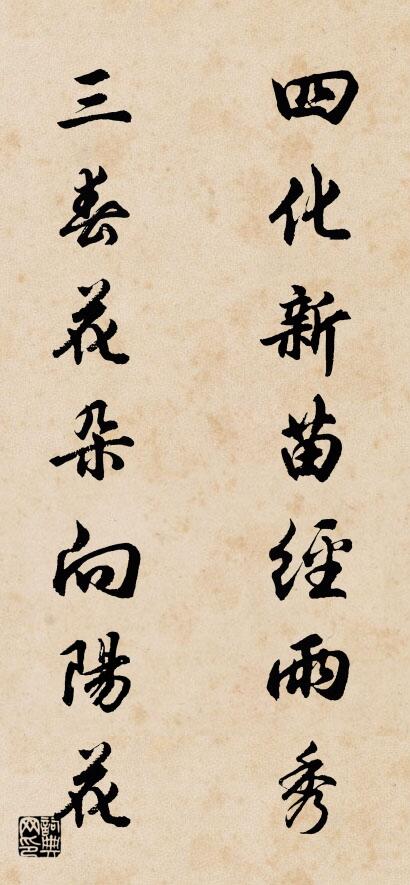 四化新苗經雨秀
三春花朵向陽花
詞典网印